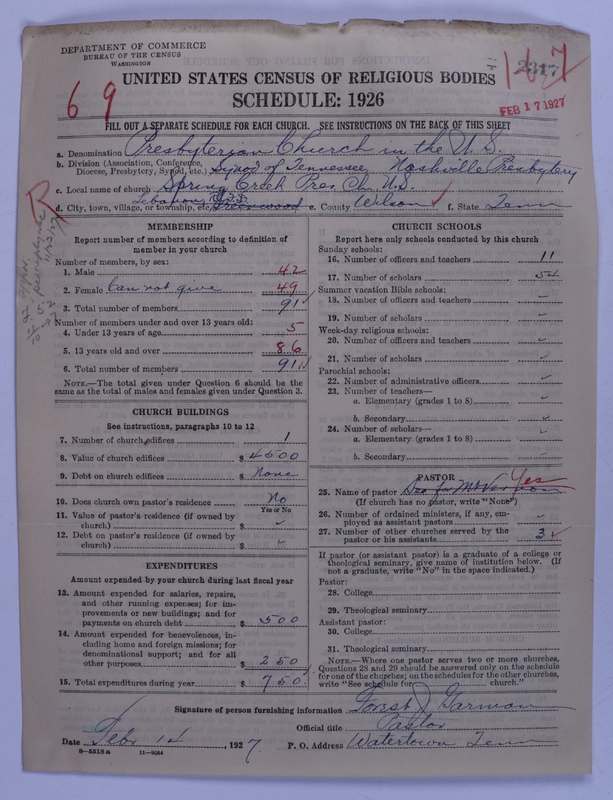 DEPARTMENT OF COMMERCE
BUREAU OF THE CENSUS
WASHINGTON
2317
UNITED STATES CENSUS OF RELIGIOUS BODIES
SCHEDULE: 1926
69
FEB 17 1927
FILL OUT A SEPARATE SCHEDULE FOR EACH CHURCH. SEE INSTRUCTIONS ON THE BACK OF THIS SHEET
a. Denomination Presbyterian Church in the U.S.
b. Division (Association, Conference, Diocese, Presbytery, Synod, etc.) Synod of Tennessee Nashville Presbytery
c. Local name of church Spring Creek Pres. Ch. U.S.
d. City, town, village, or township, etc. Lebanon, Greenwood e. County Wilson f. State Tenn
R
MEMBERSHIP
Report number of members according to definition of member in your church
Number of members, by sex:
1. Male 42
2. Female Can not give 49
3. Total number of members 91
Number of members under and over 13 years old:
4. Under 13 years of age 5
5. 13 years old and over 86
6. Total number of members 91
NOTE.—The total given under Question 6 should be the same as the total of males and females given under Question 3.
CHURCH BUILDINGS
See instructions, paragraphs 10 to 12
7. Number of church edifices 1
8. Value of church edifices $ 4500
9. Debt on church edifices $ None
10. Does church own pastor's residence No
Yes or No
11. Value of pastor's residence (if owned by church) $
12. Debt on pastor's residence (if owned by church) $
EXPENDITURES
Amount expended by your church during last fiscal year
13. Amount expended for salaries, repairs, and other running expenses; for improvements or new buildings; and for payments on church debt $ 500
14. Amount expended for benevolences, including home and foreign missions; for denominational support; and for all other purposes $ 250
15. Total expenditures during year $ 750.
CHURCH SCHOOLS
Report here only schools conducted by this church
Sunday schools:
16. Number of officers and teachers 11
17. Number of scholars 54
Summer vacation Bible schools:
18. Number of officers and teachers
19. Number of scholars
Week-day religious schools:
20. Number of officers and teachers
21. Number of scholars
Parochial schools:
22. Number of administrative officers
23. Number of teachers—
a. Elementary (grades 1 to 8)
b. Secondary
24. Number of scholars—
a. Elementary (grades 1 to 8)
b. Secondary
PASTOR
Yes
25. Name of pastor See for Mt Vernon
(If church has no pastor, write "None")
26. Number of ordained ministers, if any, employed as assistant pastors
27. Number of other churches served by the pastor or his assistants 3
If pastor (or assistant pastor) is a graduate of a college or theological seminary, give name of institution below. (If not a graduate, write "No" in the space indicated.)
Pastor:
28. College
29. Theological seminary
Assistant pastor:
30. College
31. Theological seminary
NOTE.—Where one pastor serves two or more churches, Questions 28 and 29 should be answered only on the schedule for one of the churches; on the schedules for the other churches, write "See schedule for church."
Signature of person furnishing information J. Garman
Official title Pastor
Date Feb. 14, 1927. P. O. Address Watertown Tenn
8-5518 a 11-9054